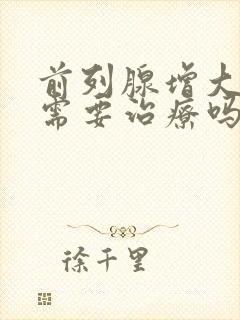 前列腺增大
需要治疗吗
徐千里